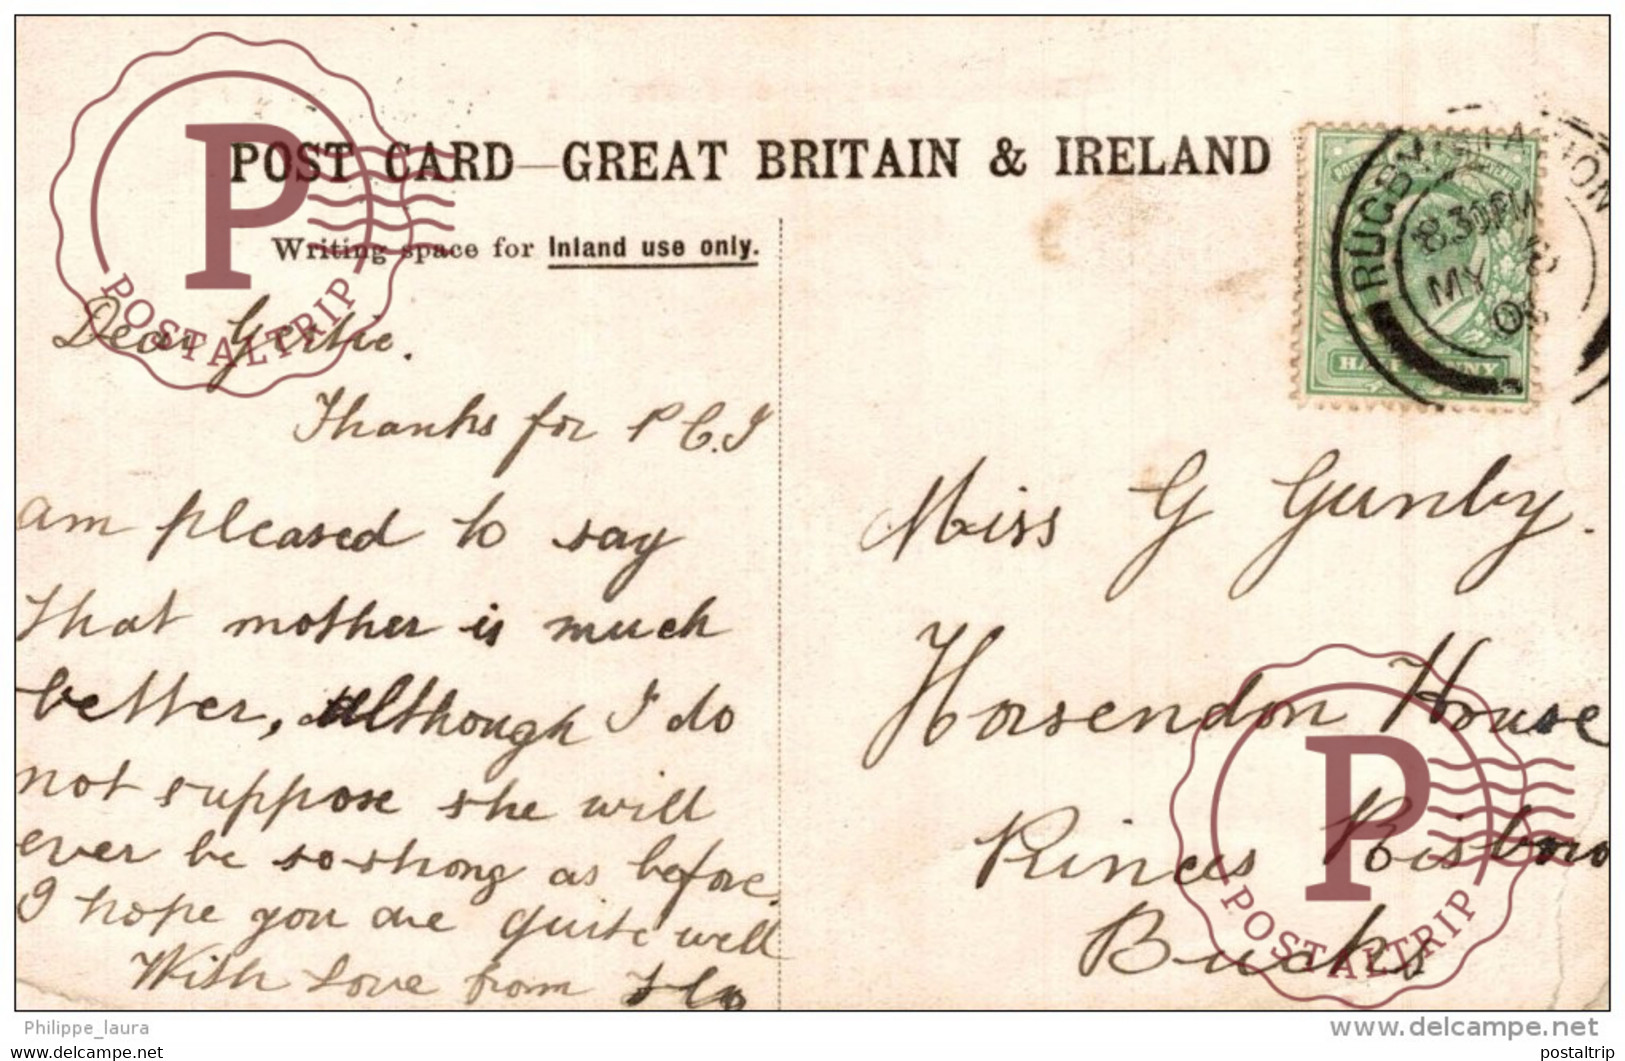 POST CARD—GREAT BRITAIN & IRELAND
Writing space for Inland use only.
Dear Gertie.
Thanks for P C. I
am pleased to say
that mother is much
better, although I do
not suppose she will
ever be so strong as before.
I hope you are quite well
With Love from Flo
RUGBY STATION
8.30PM
MY 8
08
POSTAGE
HALFPENNY
Miss G Gunby.
Horsendon House
Princes Risboro
Bucks
P
POSTALTRIP
P
POSTALTRIP
Philippe_laura
www.delcampe.net
www.delcampe.net
postaltrip